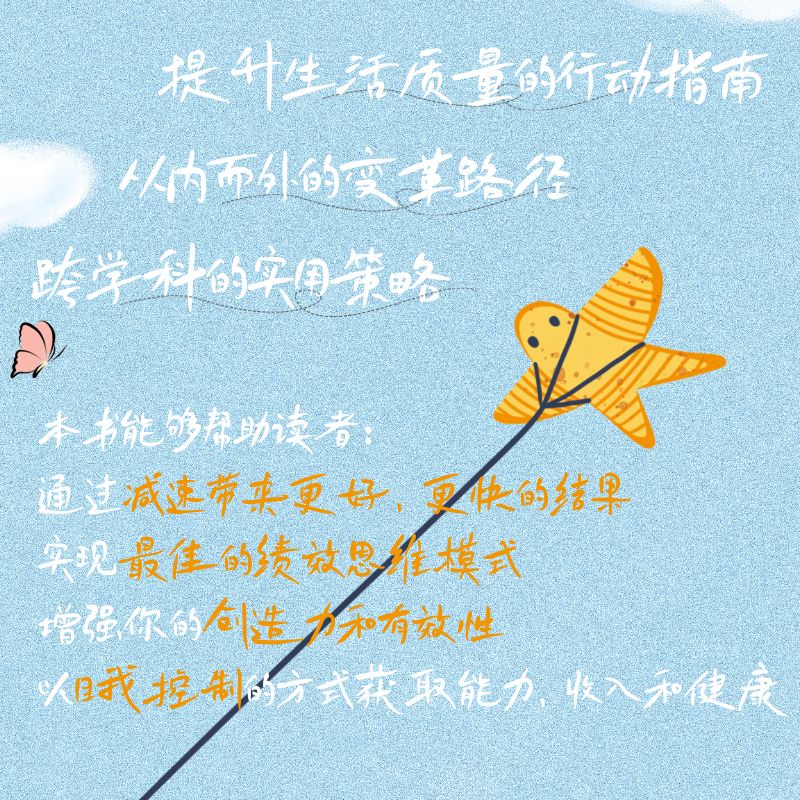 提升生活质量的行动指南
从内而外的变革路径
跨学科的实用策略
本书能够帮助读者：
通过减速带来更好、更快的结果
实现最佳的绩效思维模式
增强你的创造力和有效性
以自我控制的方式获取能力，收入和健康